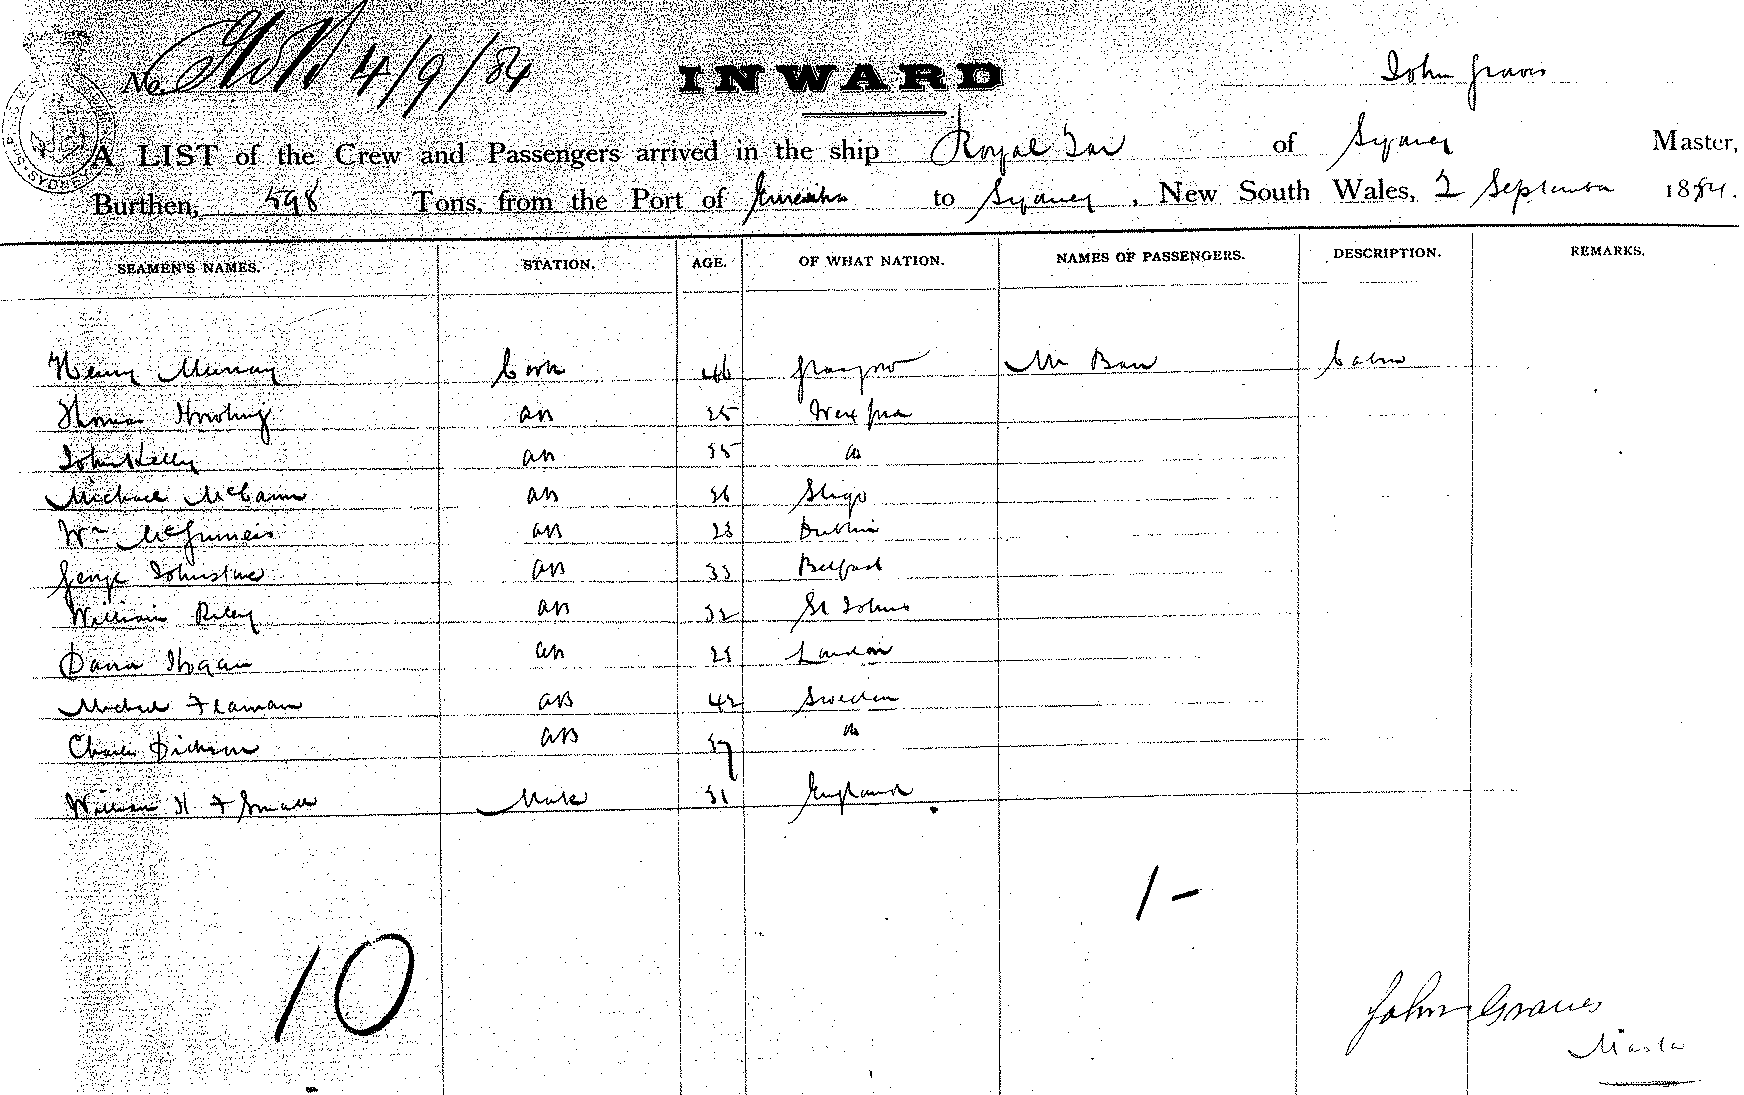 No. 4/9/84
INWARD
John Graves
A LIST of the Crew and Passengers arrived in the ship Royal Tar of Sydney Master,
Burthen, 598 Tons, from the Port of to Sydney, New South Wales, 2 September 1884.
SEAMEN'S NAMES. STATION. AGE. OF WHAT NATION. NAMES OF PASSENGERS. DESCRIPTION. REMARKS.
Henry Murray Cook 46 Glasgow Mr Cabin
Thomas AB 25 Wexford
John Kelly AB 35 Do
Michael McCann AB 36 Sligo
Wm McGuiness AB 28 Dublin
George Johnstone AB 33 Belfast
William Riley AB 32 St Johns
Hogan AB London
Michael AB 42 Sweden
Charles Dickson AB 37 Do
William H F Small Mate 31 England
1 -
10
John Graves
Master